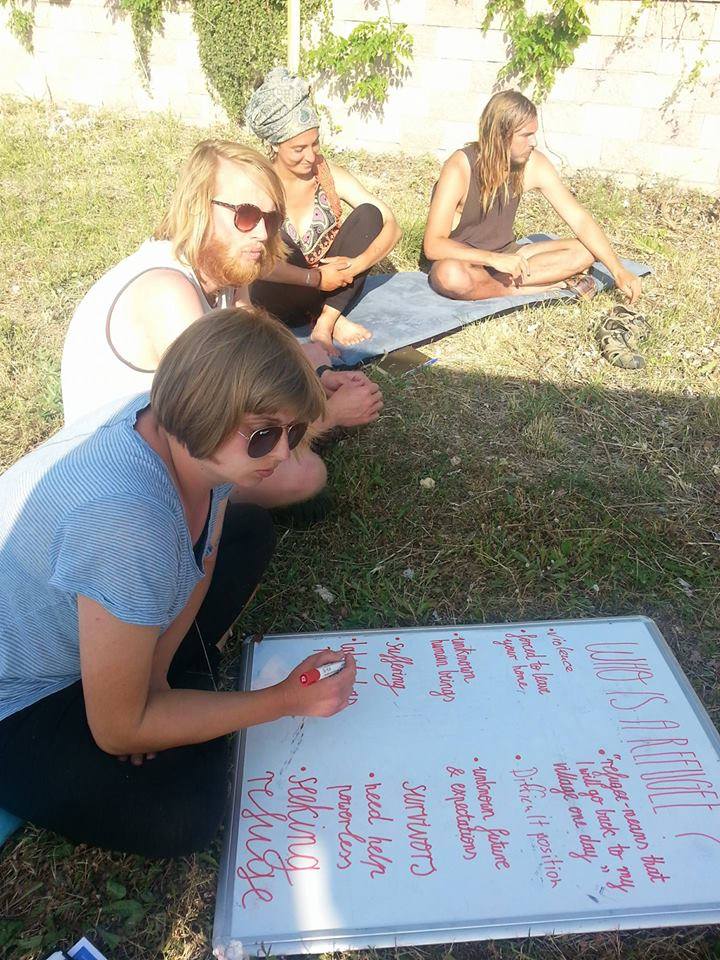 WHO IS A REFUGEE ?
• violence
• forced to leave
your home,
• unknown
human beings
• suffering
• "refugee means that
I will go back to my
village one day"
• Difficult position
• unknown future
& expectations
survivors
• need help
powerless
• seeking
refuge